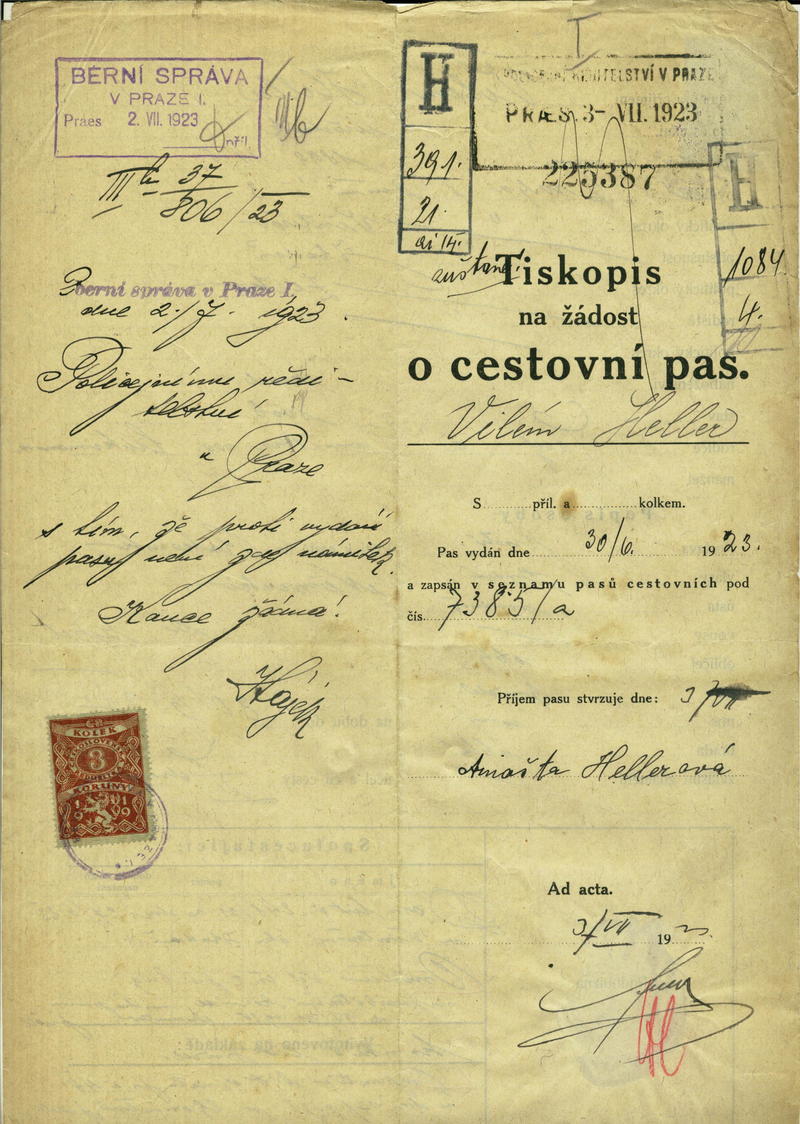 BERNÍ SPRÁVA
V PRAZE I.
Praes 2. VII. 1923
příl.
III b 37
806/23
berní správa v Praze I.
dne 2./7. 1923.
Policejnímu ředi-
telství
v Praze
s tím, že proti vydání
pasu není zde námitek.
Hájek
KOLEK
3
KORUNY
1919
H
391.
21.
POLICEJNÍ ŘEDITELSTVÍ V PRAZE
PRÆS. 3- VII. 1923
225387
H
1084
4.
Tiskopis
na žádost
o cestovní pas.
Vilém Heller
S příl. a kolkem.
Pas vydán dne 30/6. 1923.
a zapsán v seznamu pasů cestovních pod
čís. 7385/a
Příjem pasu stvrzuje dne: 3/VII
Hellerová
Ad acta.
3/VII 1923